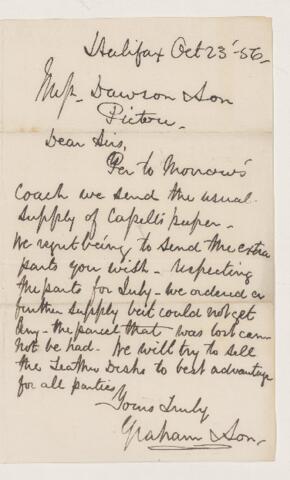 Halifax Oct 23'-56-
Mess Dawson & Son
Pictou-
Dear Sirs,
Per to Morrow's
Coach we send the usual
supply of paper-
We regret being to send the extra
parts you wish- respecting
the parts for July- we ordered a
further supply but could not get
any- the parcel that was lost cann
not be had. We will try to sell
the Leather to best advantage
for all parties
Yours truly
Graham & Son-